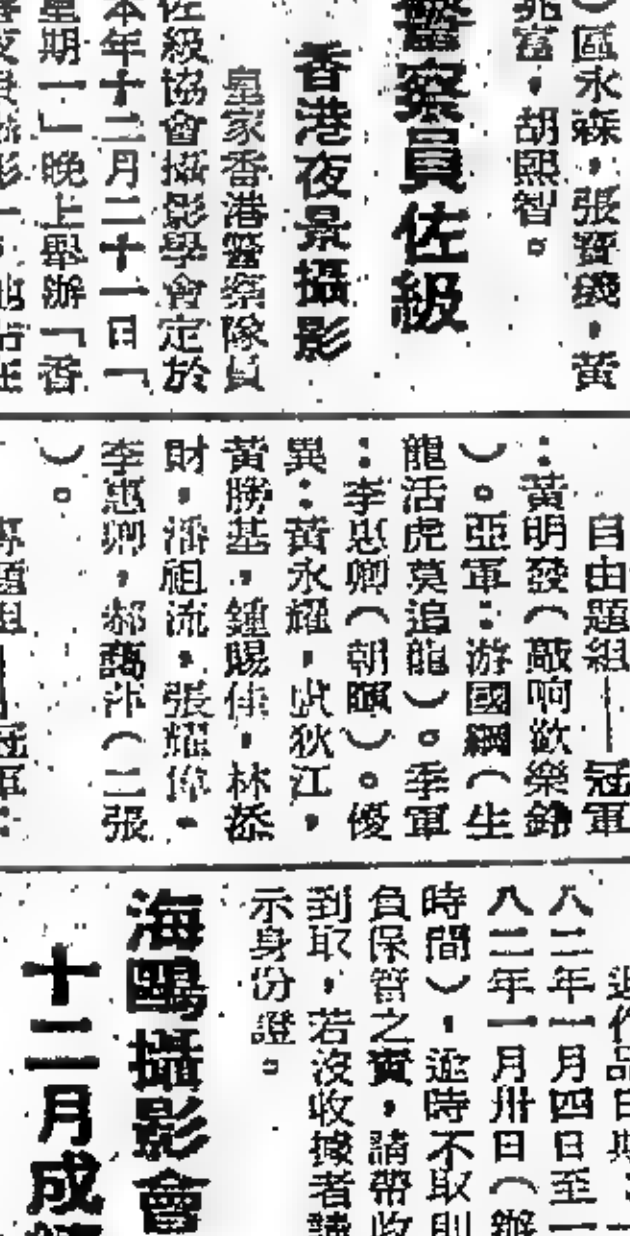 ）區永森，張寶義，黃
兆富，胡熙智。
警察員佐級
香港夜景攝影
皇家香港警察隊員
佐級協會攝影學會定於
本年十二月二十一日「
星期一」晚上舉辦「香
自由題組——冠軍
：黃明發（敲响歡樂鐘
）。亞軍：游國綱（生
龍活虎莫追龍）。季軍
：李惠卿（朝暉）。優
異：黃永耀，狄江，
黃勝基，鍾賜佳，林添
財，潘祖流，張耀偉，
李惠卿，郝（二張
）。
專題組——冠軍：
退作品日期：一
八二年一月四日至一
八二年一月卅日（辦
時間），逾時不取則
負保管之責，請帶收
到取，若沒收據者請
示身份證。
海鷗攝影會
十二月成績